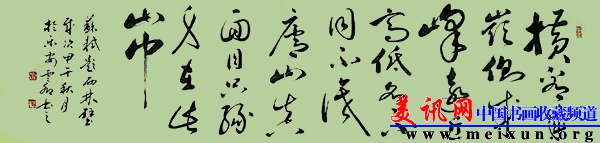 横看成
岭侧成
峰远近
高低各不
同不识
庐山真
面目只缘
身在此
山中
苏轼题西林壁
岁次甲午秋月
美讯网
中国书画收藏频道
www.meixun.org